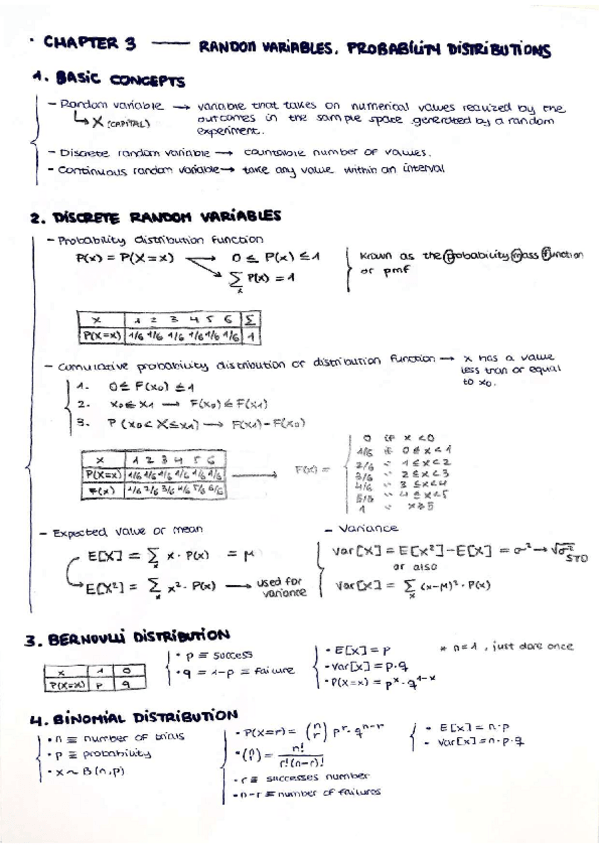 · CHAPTER 3 —— RANDOM VARIABLES. PROBABILITY DISTRIBUTIONS
1. BASIC CONCEPTS
- Random variable → variable that takes on numerical values required by the
↳ X (CAPITAL) outcomes in the sample space generated by a random
experiment.
- Discrete random variable → countable number of values.
- Continuous random variable → take any value within an interval
2. DISCRETE RANDOM VARIABLES
- Probability distribution function
P(x) = P(X=x) → 0 ≤ P(x) ≤ 1
→ ∑x P(x) = 1
Known as the probability mass function
or pmf
x 1 2 3 4 5 6 ∑
P(X=x) 1/6 1/6 1/6 1/6 1/6 1/6 1
- Cumulative probability distribution or distribution function → x has a value
less than or equal
to x₀.
1. 0 ≤ F(x₀) ≤ 1
2. x₀ ≤ x₁ → F(x₀) ≤ F(x₁)
3. P(x₀ < X ≤ x₁) → F(x₁) - F(x₀)
x 1 2 3 4 5 6
P(X=x) 1/6 1/6 1/6 1/6 1/6 1/6
F(x) 1/6 2/6 3/6 4/6 5/6 6/6
F(x) =
0 if x < 0
1/6 if 0 ≤ x < 1
2/6 " 1 ≤ x < 2
3/6 " 2 ≤ x < 3
4/6 " 3 ≤ x < 4
5/6 " 4 ≤ x < 5
1 "
- Expected value or mean
E[X] = ∑x x · P(x) = μ
E[X²] = ∑x x² · P(x) → used for
variance
- Variance
Var[X] = E[X²] - E[X] = σ² → √σ²
STD
or also
Var[X] = ∑x (x-μ)² · P(x)
3. BERNOULLI DISTRIBUTION
x 1 0
P(X=x) p q
· p ≡ success
· q = 1-p = failure
· E[X] = p
· Var[X] = p·q
· P(X=x) = pˣ · q¹⁻ˣ
* n=1, just done once
4. BINOMIAL DISTRIBUTION
· n ≡ number of trials
· p ≡ probability
· X ~ B(n,p)
· P(X=r) = (n r) pʳ · qⁿ⁻ʳ
· (n r) = n! / r!(n-r)!
· r ≡ successes number
· n-r ≡ number of failures
· E[X] = n·p
- Var[X] = n·p·q